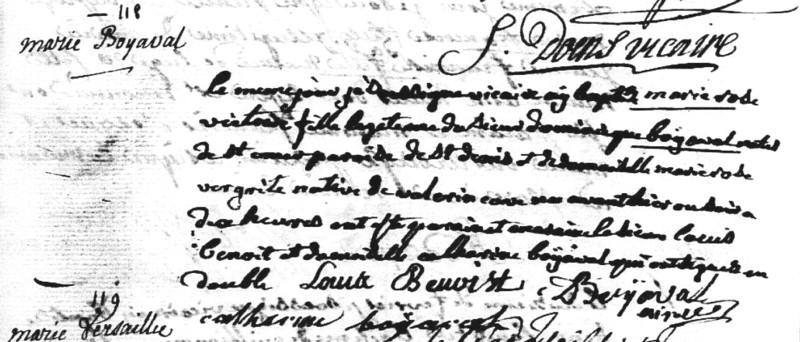 118
marie Boyaval
S. Doens vicaire
le meme jour je soussigne vicaire ay baptisé marie rose
victoire fille legitime du sieur dominique boyaval natif
de St omer paroisse de St denis et de damoiselle marie rose
vergrite native de née avant hier au soir a
dix heures ont esté parain et maraine le sieur louis
benoit et damoiselle catharine boyaval qui ont signé en
double Louis Benoist Boyaval
catharine boyaval
119
marie Versaillie